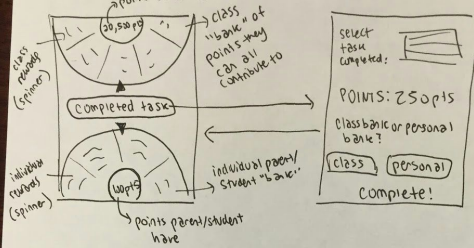 20,500pts
class
"bank" of
points they
can all
contribute to
class
rewards
(spinner)
completed task
individual
rewards
(spinner)
100pts
individual parent/
student "bank"
points parent/student
have
select
task
completed:
POINTS: 250pts
class bank or personal
bank?
class
personal
complete!